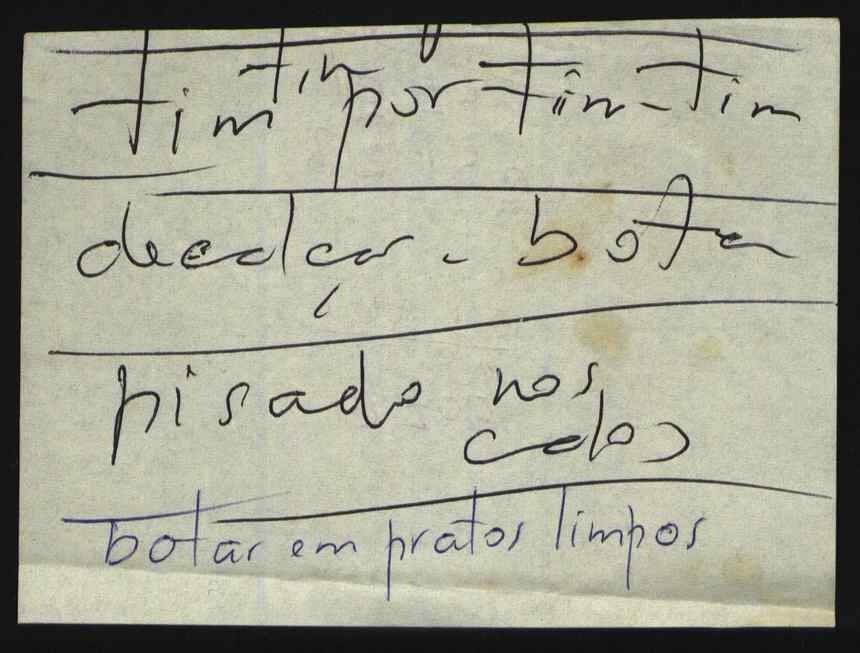 tim tin por tin-tim
descalçar a bota
pisado nos
calos
botar em pratos limpos